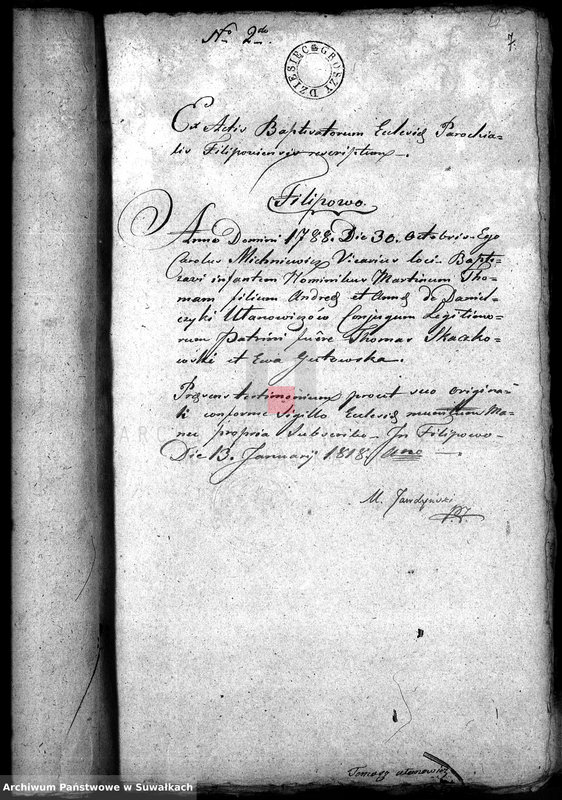 No 2do
7.
DZIESIĘC GROSZY
Ex Actis Baptisatorum Eclesiæ Parochia=
lis Filipoviensis rescriptum.
Filipowo.
Anno Domini 1788. Die 30. Octobris. Ego
Carolus Michniewicz Vicarius loci. Bapti=
zavi infantem Nominibus Martinum Tho=
mam filium Andreæ et Annæ de Daniel=
czyki Utanowizów Conjugum Legitimo=
rum Patrini fuêre Thomas Skaczko=
wski et Ewa Gutowska.
Præsens testimonium prout suo origina=
li conforme Sigillo Eclesiæ munitum Ma=
nu propria Subscribo. In Filipowo
Die 13. Januarij 1818. Ano
M.
Tomasz Utanowicz
Archiwum Państwowe w Suwałkach